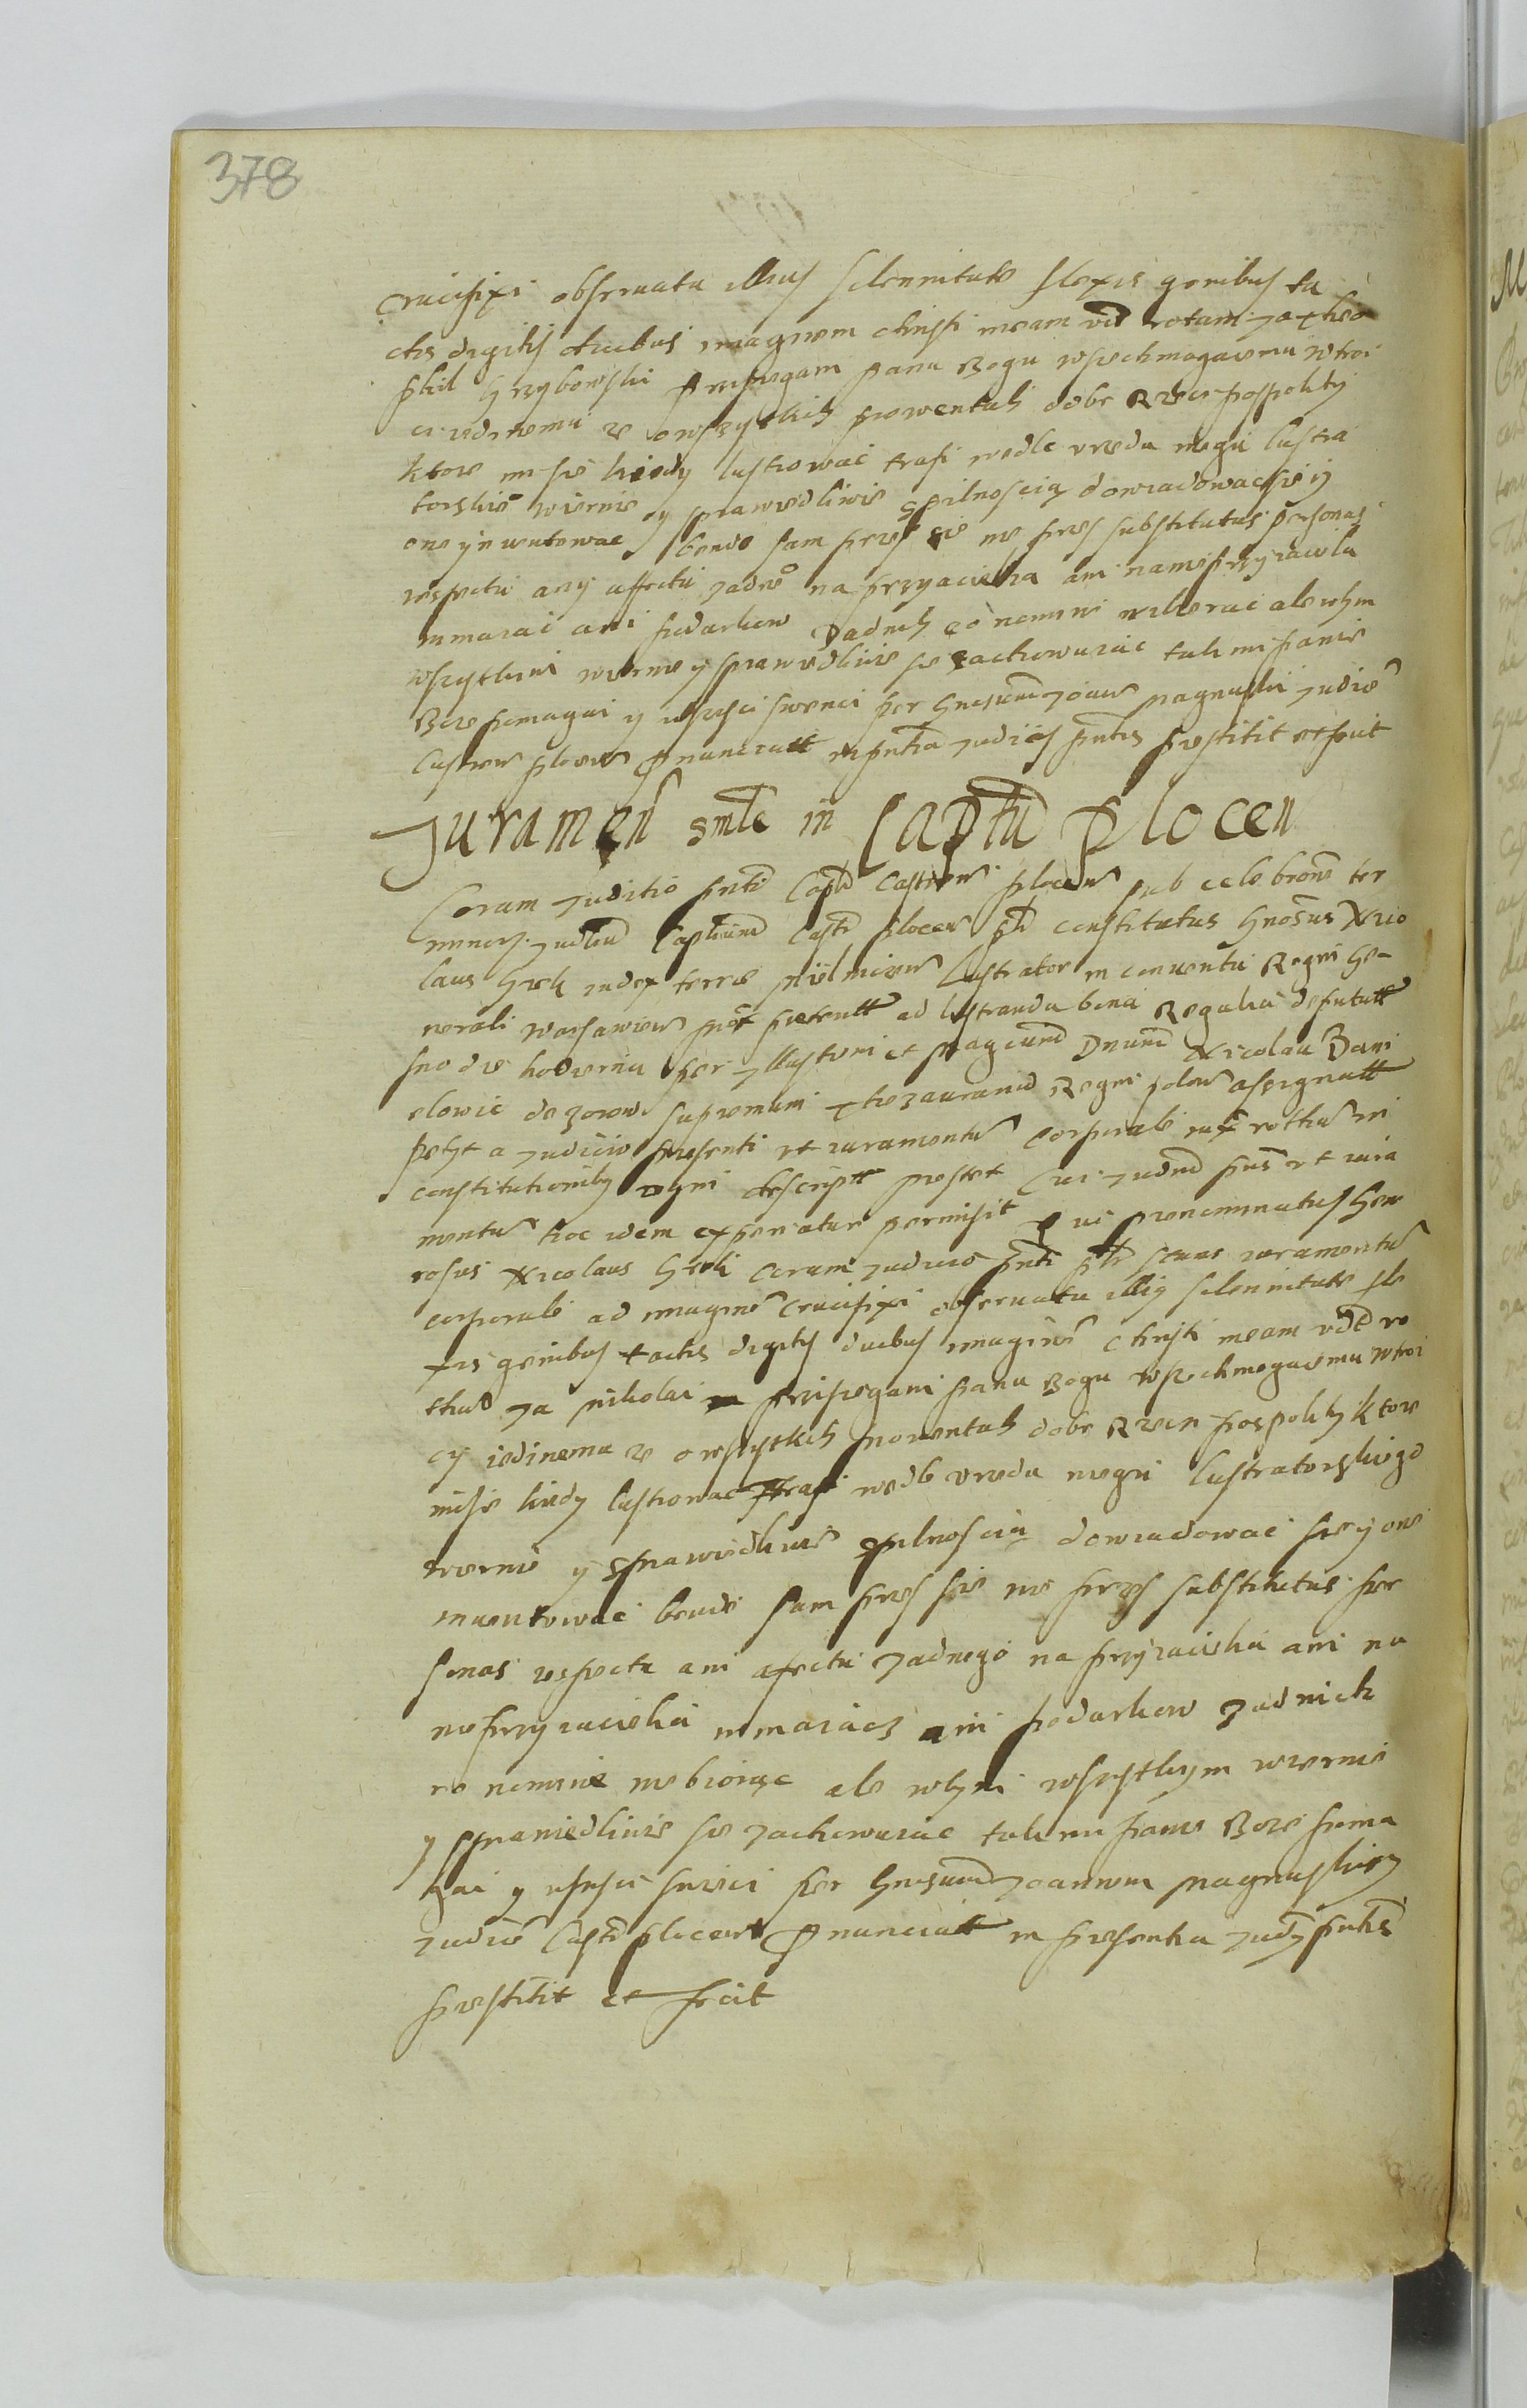 378
crucifixi obseruata illius solennitate flexis genibus ta
ctis digitis duobus imaginem christi meam vid rotam Ja theo
phil Grzybowski Przysiegam panu Bogu wszechmogacemu wtroi
ci iedinemu ze owszystkich prowentach dobr Rzeci pospolity
ktore mi sie kiedy lustrowac trafi wedle vrzedu mego lustra
torskie wiernie y sprawiedliwie spilnoscia dowiadowac sie y
one ynwentowac bende sam przes sie nie przes substitutas personas
respectu any affectu zadne na przyaciela ani nanieprzyiaciela
nimaiac ani podarkow zadnich co nomine nibiorac ale wtim
wszytkim wiernie y sprawiedliwie sie zachowuiac tak mi panie
Boze pomagai y wszysci swienci per Gnosum Joan Magnuski Judic
Castren plocen pnunciatt in pntia Judicij pntis prestitit et fecit
Juramen smle in Captu Plocen
Coram Juditio pnti Capt Castren plocen sub celebrone ter
minor Judiciu Captium Castr plocen pls constitutus Gnosus Nico
laus Gzeli iudex terre mielnicen Lustrator in conuentu Regni Ge-
nerali warsawien prox preteritt ad lustranda bona Regalia deputatt
pro die hodierna per Illustrem et Magcum Dnum Nicolau Dani
elowic de zorow supremum thezaurarium Regni poloniæ assignatt
petyt a Judicio presenti ut iuramentu corporale iux rotham in
constitutionibus regni descript prestet Cui Judm pns ut iura
mentu hoc idem exsequatur permisit Qui prenominatus Gene
rosus Nicolaus Gzeli coram Judicio pnti plr stans iuramentu
corporale ad imagine crucifixi obseruata illius solennitate fle
xis genibus tactis digitis duobus imagine Christi meam vdt ro
tham Ja Mikolai Przisiegam panu Bogu wszechmogacemu wtroi
cy iedinemu ze owszystkich prowentach dobr Rzeci pospolity ktore
misie kiedy lustrowac trafi wedle vrzedu mego lustratorskiego
wiernie y sprawiedliwie spilnoscia dowiadowac sie y one
inuentowac bende sam przes sie nie przes substitutas per
sonas respectu ani afectu zadnego na przyiaciela ani na
nieprzyiaciela nimaiacz ani podarkow zadnich
co nomine niebiorąc ale wtym wszystkym wiernie
y sprawiedliwie sie zachowuiac tak mi panie Boze poma
gai y wszysci swieci per Gnosum Joannem Magnuski
Judice Castr plocen pnunciatt in presentia Judy pntis
prestitit et fecit